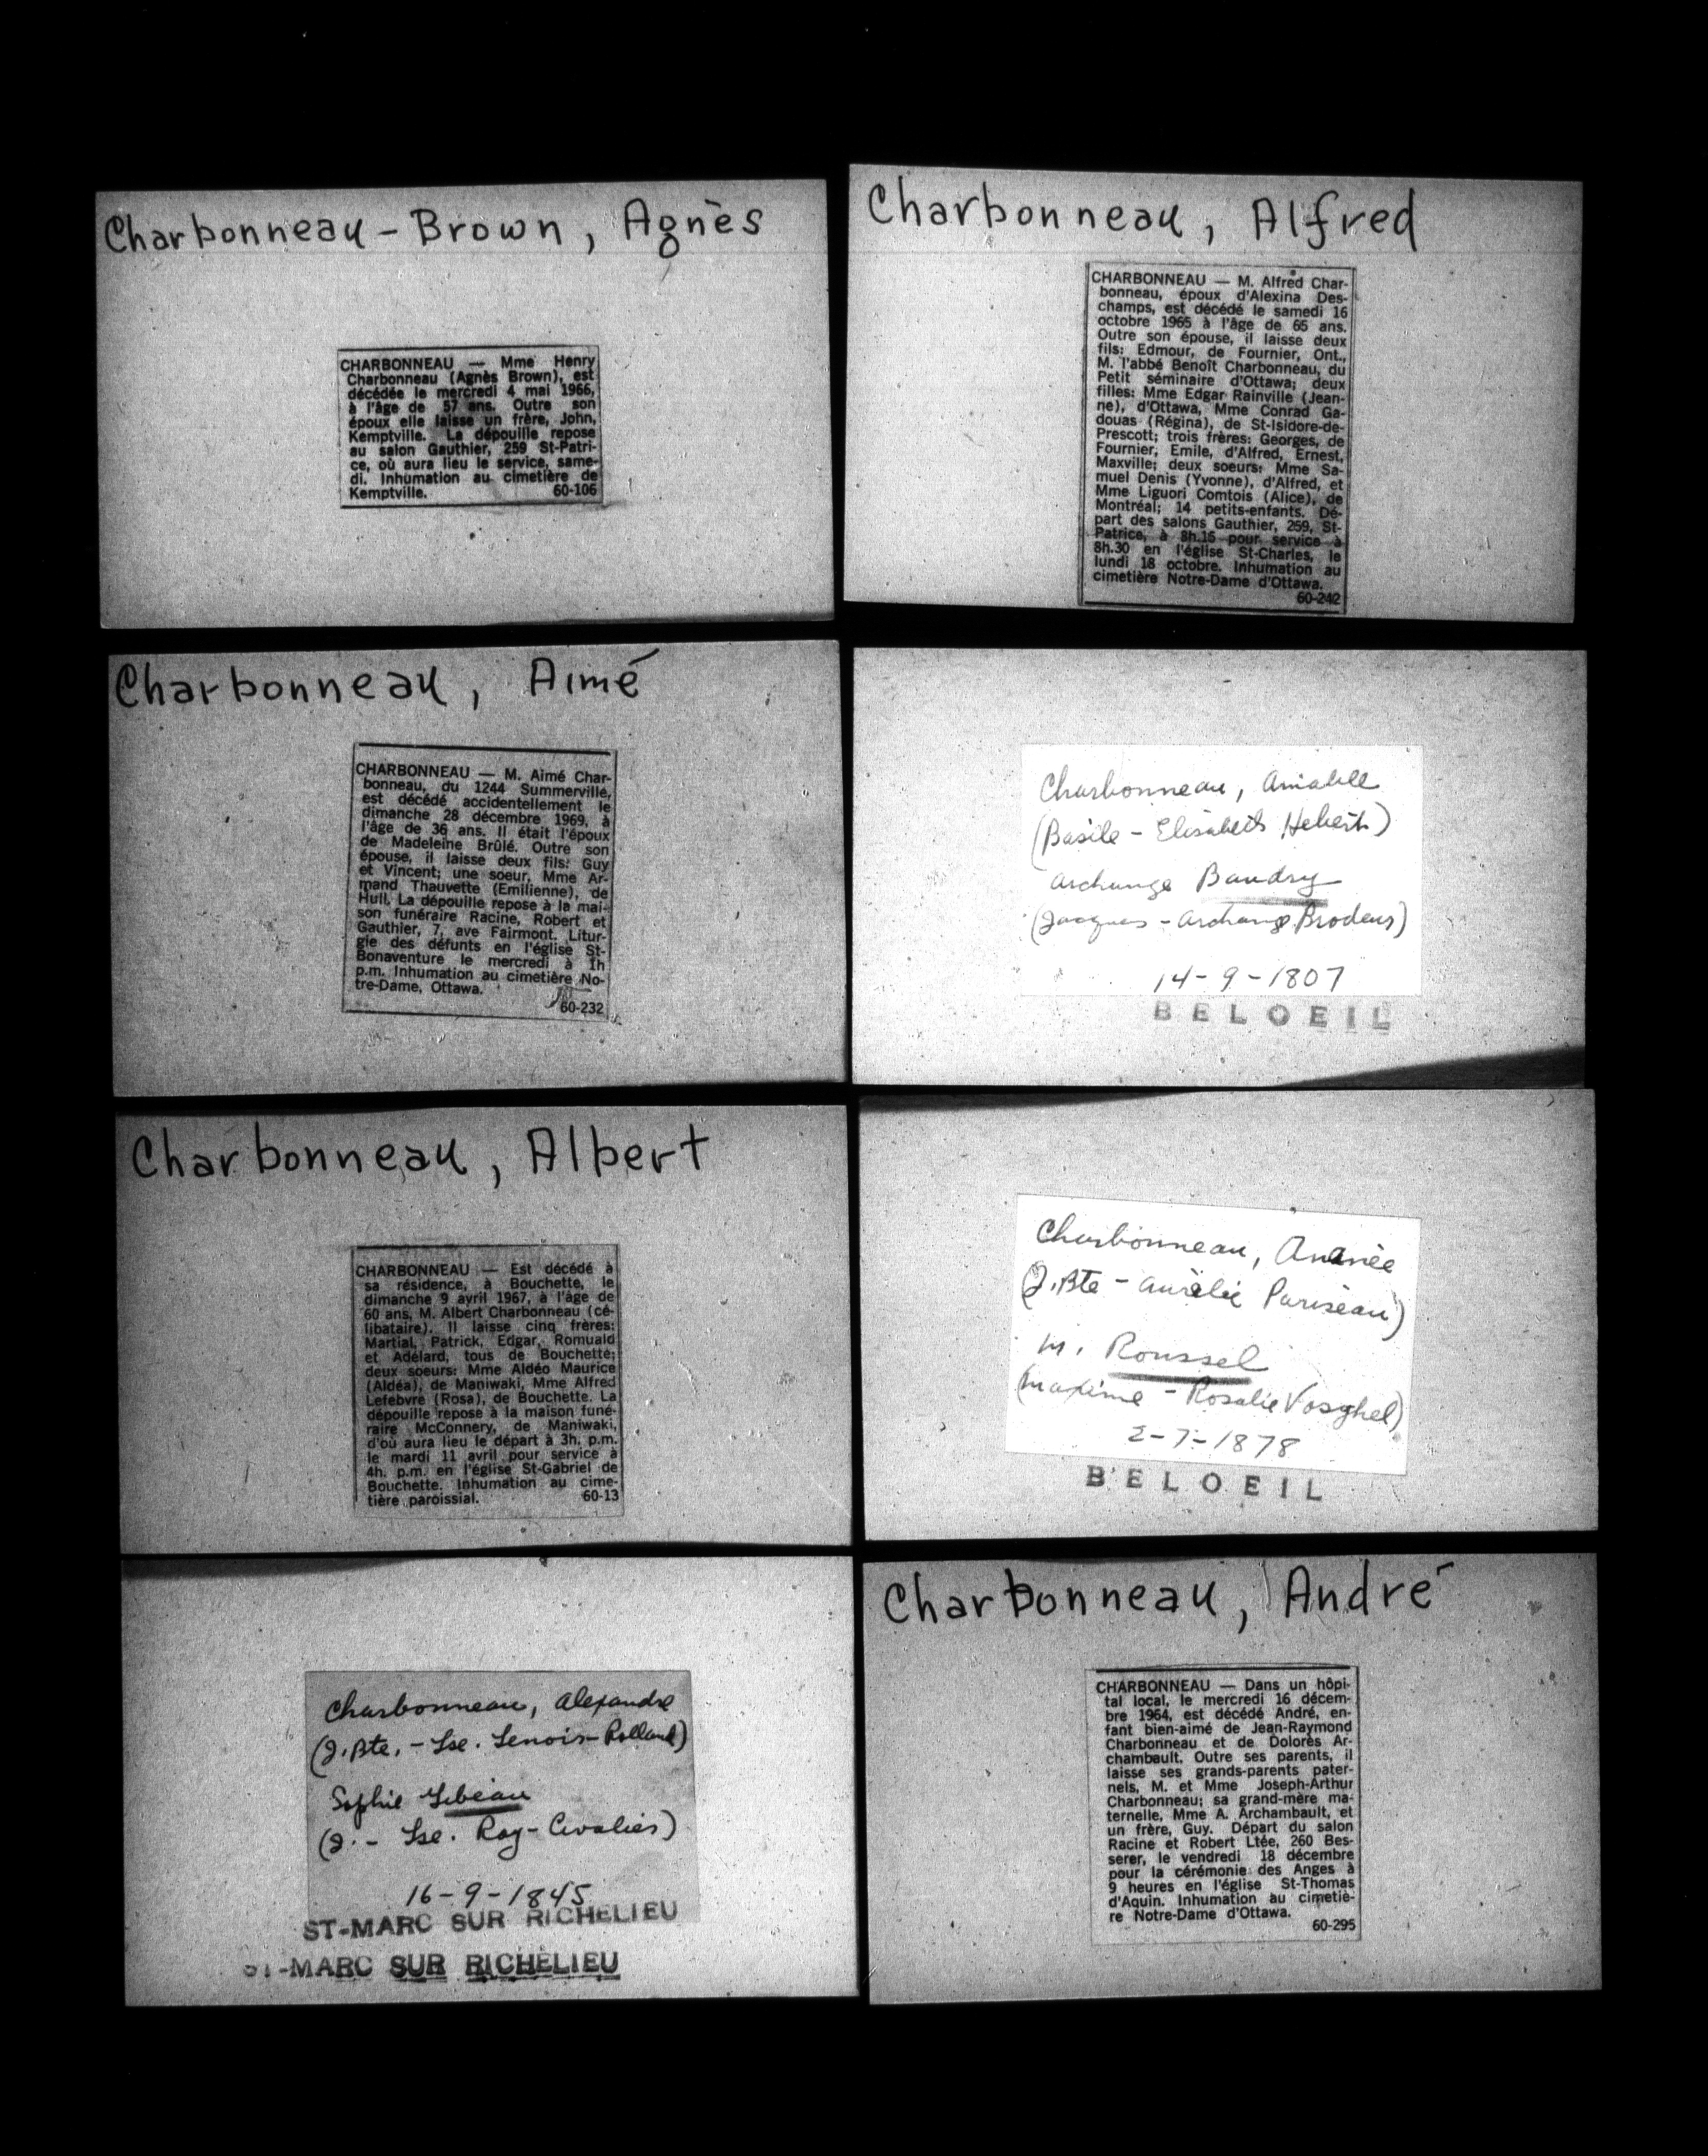 Charbonneau-Brown, Agnès
CHARBONNEAU — Mme Henry
Charbonneau (Agnès Brown), est
décédée le mercredi 4 mai 1966,
à l'âge de 57 ans. Outre son
époux elle laisse un frère, John,
Kemptville. La dépouille repose
au salon Gauthier, 259 St-Patri-
ce, où aura lieu le service, same-
di. Inhumation au cimetière de
Kemptville. 60-106
Charbonneau, Aimé
CHARBONNEAU — M. Aimé Char-
bonneau, du 1244 Summerville,
est décédé accidentellement le
dimanche 28 décembre 1969, à
l'âge de 36 ans. Il était l'époux
de Madeleine Brûlé. Outre son
épouse, il laisse deux fils: Guy
et Vincent; une soeur, Mme Ar-
mand Thauvette (Emilienne), de
Hull. La dépouille repose à la mai-
son funéraire Racine, Robert et
Gauthier, 7, ave Fairmont. Litur-
gie des défunts en l'église St-
Bonaventure le mercredi à 1h
p.m. Inhumation au cimetière No-
tre-Dame, Ottawa.
60-232
Charbonneau, Albert
CHARBONNEAU — Est décédé à
sa résidence, à Bouchette, le
dimanche 9 avril 1967, à l'âge de
60 ans, M. Albert Charbonneau (cé-
libataire). Il laisse cinq frères:
Martial, Patrick, Edgar, Romuald
et Adélard, tous de Bouchette;
deux soeurs: Mme Aldéo Maurice
(Aldéa), de Maniwaki, Mme Alfred
Lefebvre (Rosa), de Bouchette. La
dépouille repose à la maison funé-
raire McConnery, de Maniwaki,
d'où aura lieu le départ à 3h. p.m.
le mardi 11 avril pour service à
4h. p.m. en l'église St-Gabriel de
Bouchette. Inhumation au cime-
tière paroissial. 60-13
Charbonneau, Alexandre
(J.Bte. - Lse. Lenoir-Rolland)
Sophie Lebeau
(J. - Lse. Roy-Civalier)
16-9-1845
ST-MARC SUR RICHELIEU
ST-MARC SUR RICHELIEU
Charbonneau, Alfred
CHARBONNEAU — M. Alfred Char-
bonneau, époux d'Alexina Des-
champs, est décédé le samedi 16
octobre 1965 à l'âge de 65 ans.
Outre son épouse, il laisse deux
fils: Edmour, de Fournier, Ont.,
M. l'abbé Benoît Charbonneau, du
Petit séminaire d'Ottawa; deux
filles: Mme Edgar Rainville (Jean-
ne), d'Ottawa, Mme Conrad Ga-
douas (Régina), de St-Isidore-de-
Prescott; trois frères: Georges, de
Fournier, Emile, d'Alfred, Ernest,
Maxville; deux soeurs: Mme Sa-
muel Denis (Yvonne), d'Alfred, et
Mme Liguori Comtois (Alice), de
Montréal; 14 petits-enfants. Dé-
part des salons Gauthier, 259, St-
Patrice, à 8h.15 pour service à
8h.30 en l'église St-Charles, le
lundi 18 octobre. Inhumation au
cimetière Notre-Dame d'Ottawa.
60-242
Charbonneau, Amiable
(Basile - Elisabeth Hebert)
Archange Baudry
(Jacques - Archange Brodeur)
14-9-1807
BELOEIL
Charbonneau, Ananée
(J.Bte - Aurélie Pariseau)
M. Roussel
(Maxime - Rosalie Vosghel)
2-7-1878
BELOEIL
Charbonneau, André
CHARBONNEAU — Dans un hôpi-
tal local, le mercredi 16 décem-
bre 1964, est décédé André, en-
fant bien-aimé de Jean-Raymond
Charbonneau et de Dolorès Ar-
chambault. Outre ses parents, il
laisse ses grands-parents pater-
nels, M. et Mme Joseph-Arthur
Charbonneau; sa grand-mère ma-
ternelle, Mme A. Archambault, et
un frère, Guy. Départ du salon
Racine et Robert Ltée, 260 Bes-
serer, le vendredi 18 décembre
pour la cérémonie des Anges à
9 heures en l'église St-Thomas
d'Aquin. Inhumation au cimetiè-
re Notre-Dame d'Ottawa.
60-295